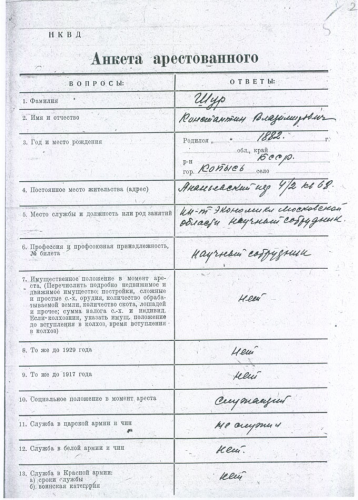 2
НКВД
Анкета арестованного
ВОПРОСЫ:
ОТВЕТЫ:
1. Фамилия
Шур
2. Имя и отчество
Константин Владимирович
3. Год и место рождения
Родился 1892.
обл., край
р-н БССР.
гор. Копысь село
4. Постоянное место жительства (адрес)
4/2 кв 68.
5. Место службы и должность или род занятий
Ин-т экономики Московской
области научный сотрудник.
6. Профессия и профсоюзная принадлежность,
№ билета
научный сотрудник
7. Имущественное положение в момент аре-
ста. (Перечислить подробно недвижимое и
движимое имущество: постройки, сложные
и простые с.-х. орудия, количество обраба-
тываемой земли, количество скота, лошадей
и прочее; сумма налога с.-х. и индивид.
Если колхозник, указать имущ. положение
до вступления в колхоз, время вступления
в колхоз)
нет
8. То же до 1929 года
нет
9. То же до 1917 года
нет
10. Социальное положение в момент ареста
служащий
11. Служба в царской армии и чин
не служил
12. Служба в белой армии и чин
нет.
13. Служба в Красной армии:
а) сроки службы
б) воинская категория
нет